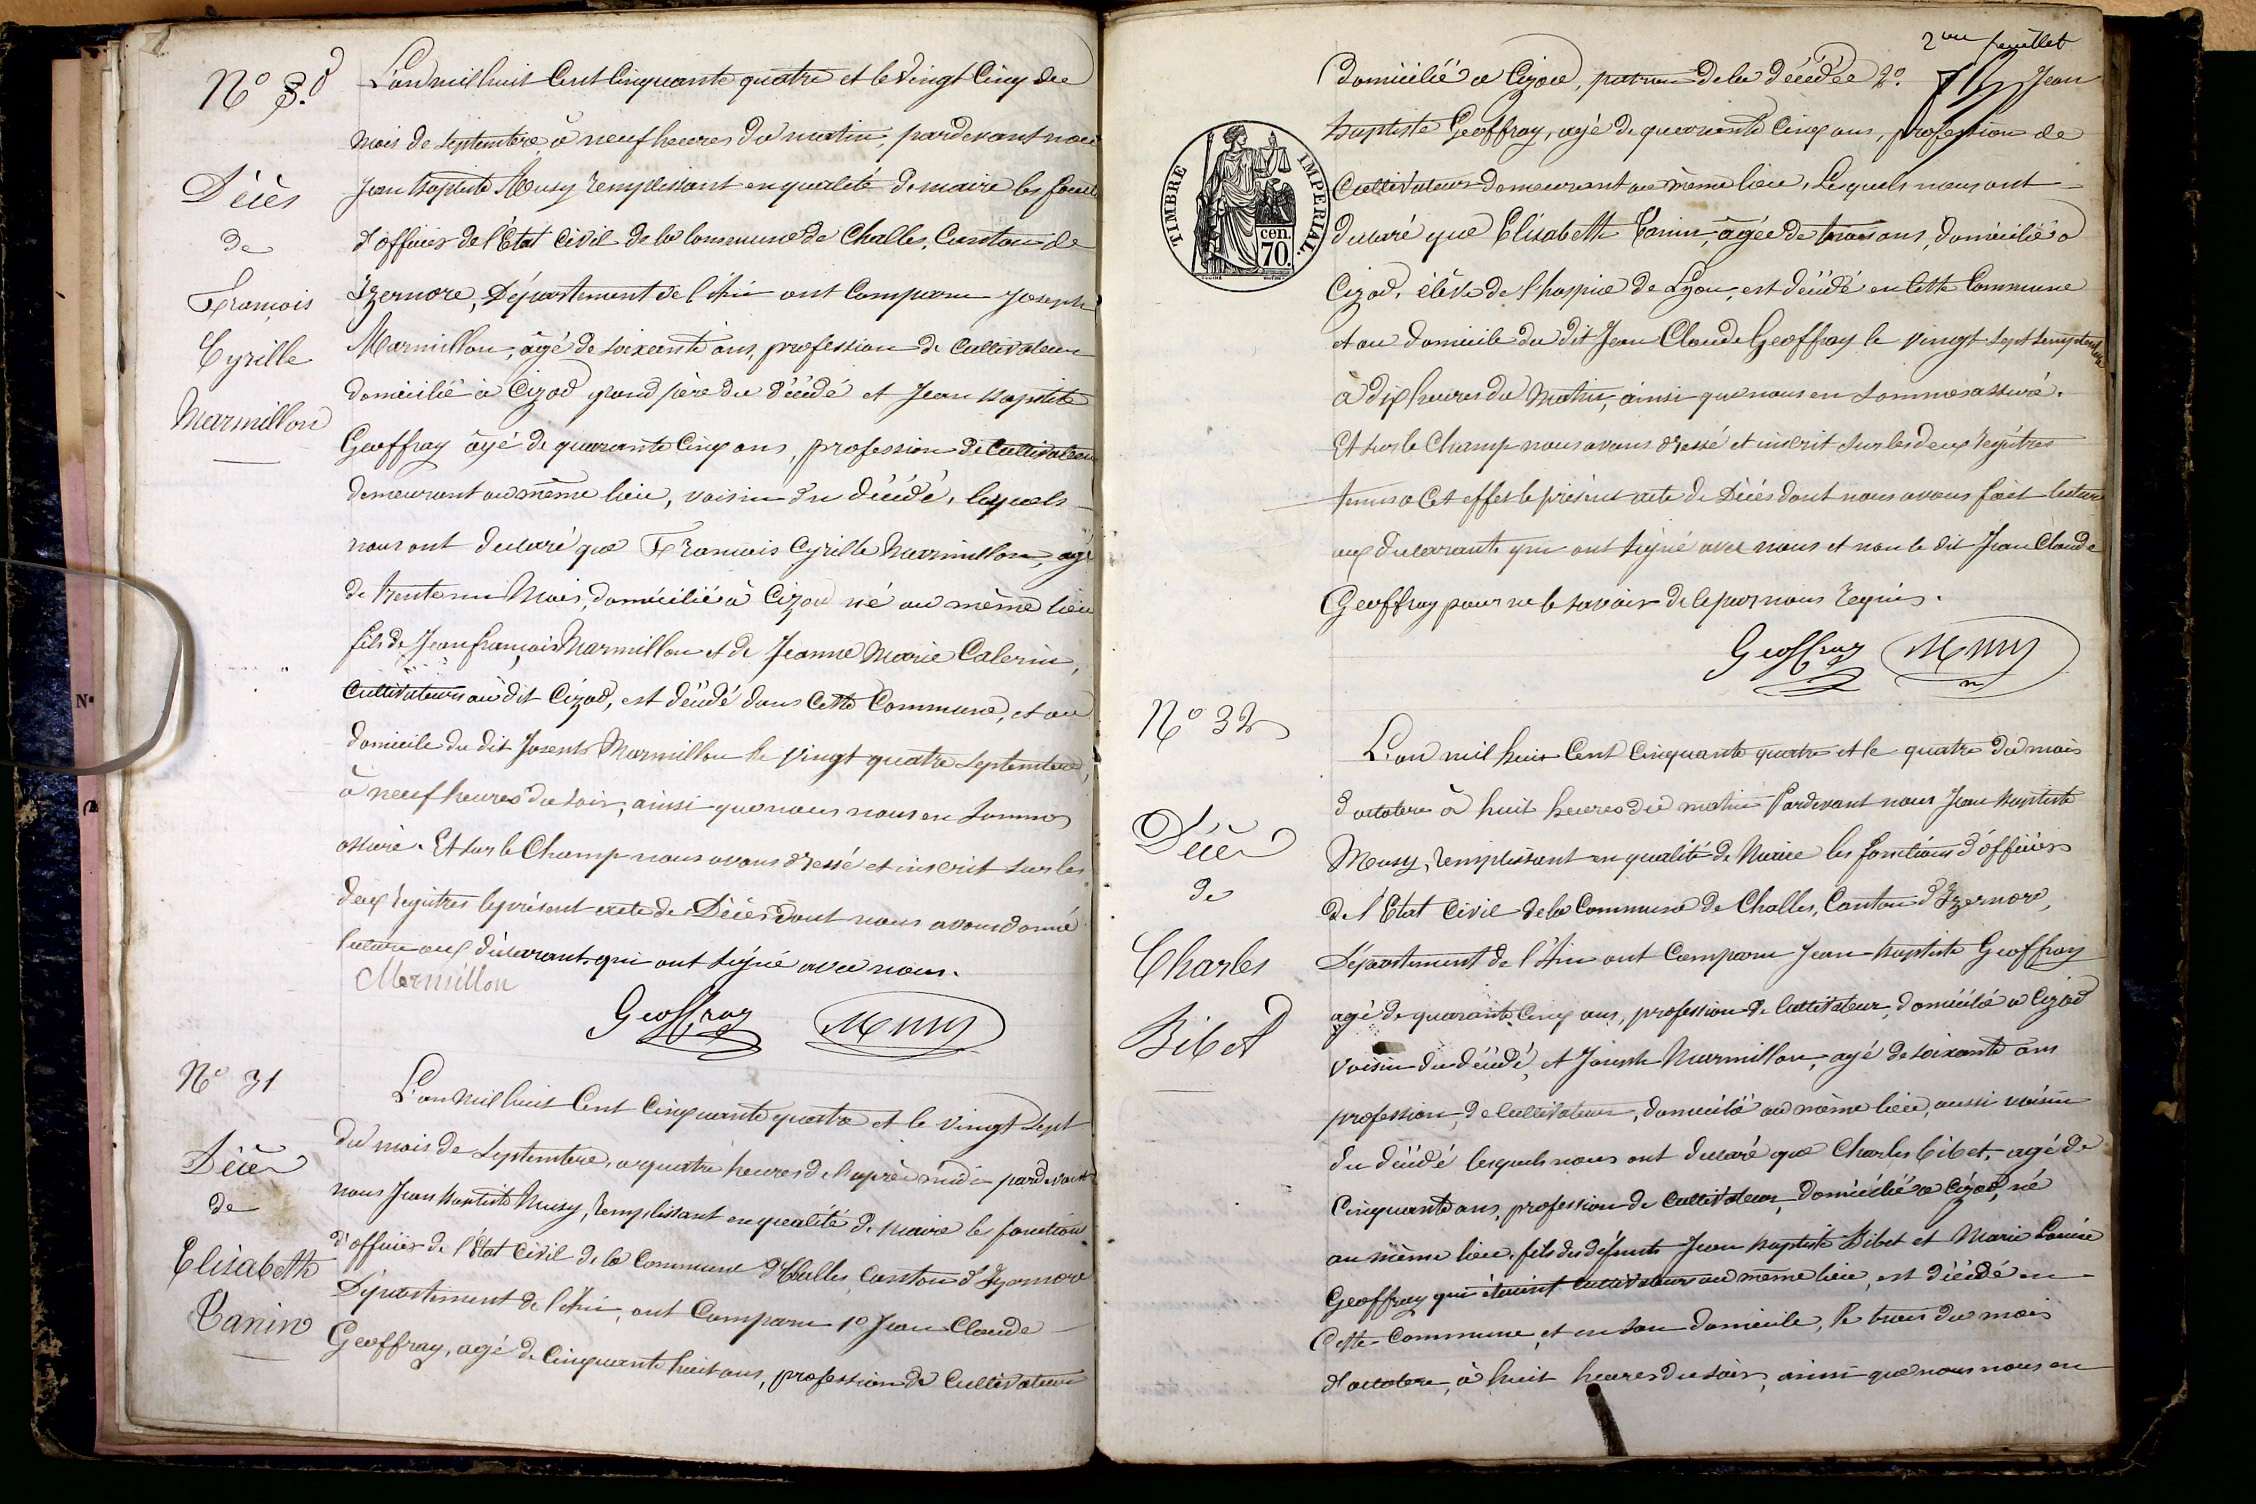 N° 30
Décès
de
François
Cyrille
Marmillon
L'an mil huit Cent Cinquante quatre et le Vingt Cinq du
mois de septembre à neuf heures du matin, pardevant nous
Jean baptiste Musy remplissant en qualité de maire les fonct
d'officier de l'État Civil de la Commune de Challes, Canton de
Izernore, Département de l'Ain ont Comparu Joseph
Marmillon, âgé de soixante ans, profession de Cultivateur
domicilié à Cizod grand père du décédé et Jean baptiste
Geoffray âgé de quarante Cinq ans, profession de Cultivateur
demeurant au même lieu, voisin du décédé, lesquels
nous ont déclaré que François Cyrille Marmillon, âgé
de trente un Mois, domicilié à Cizod né au même lieu
fils de Jean françois Marmillon et de Jeanne Marie Calerin,
Cultivateurs au dit Cizod, est décédé dans Cette Commune, et au
domicile du dit Joseph Marmillon le Vingt quatre septembre,
à neuf heures du soir, ainsi que nous nous en sommes
assuré. Et sur le Champ nous avons dressé et inscrit sur les
deux régitres le présent acte de Décès dont nous avons donné
lecture aux déclarants qui ont signé avec nous.
Marmillon
Geoffray Musy
N° 31
Décès
de
Elisabeth
Vanin
L'an Mil huit Cent Cinquante quatre et le vingt Sept
du mois de Septembre, a quatre heures de l'après midi pardevant
nous Jean baptiste Musy, remplissant en qualité de Maire les fonction
d'officier de l'état Civil de la Commune de Challes, Canton d'Izernore
Département de l'Ain, ont Comparu 1° Jean Claude
Geoffray, agé de Cinquante huit ans, profession de Cultivateur
2me feuillet
TIMBRE IMPERIAL.
70. cen.
domicilié a Cizod, patron de la décédée 2° Jean
baptiste Geoffray, agé de quarante Cinq ans, profession de
Cultivateur demeurant au même lieu, Lesquels nous ont
declaré que Elisabeth Vanin, âgée de trois ans, domicilié a
Cizod, élève de l'hospice de Lyon, est décédé en Cette Commune
et au domicile du dit Jean Claude Geoffray le vingt sept septembre
à dix heures du Matin, ainsi que nous en sommes assuré.
Et sur le Champ nous avons dressé et inscrit sur les deux régitres
tenus a Cet effet le présent acte de Décès dont nous avons fait lecture
aux declarants qui ont signé avec nous et non le dit Jean Claude
Geoffray pour ne le savoir de ce par nous requis.
Geoffray Musy
N° 32
Décès
de
Charles
Bibet
L'an mil huit Cent Cinquante quatre et le quatre du mois
d'octobre à huit heures du matin Pardevant nous Jean baptiste
Musy, remplissant en qualité de Maire les fonctions d'officier
de l'Etat Civil de la Commune de Challes, Canton d'Izernore,
Département de l'Ain ont Comparu Jean-baptiste Geoffray
agé de quarante Cinq ans, profession de Cultivateur, domicilié a Cizod
voisin du décédé, et Joseph Marmillon, agé de soixante ans
profession de Cultivateur, domicilié au même lieu, aussi voisin
du décédé lesquels nous ont declaré que Charles bibet, agé de
Cinquante ans, profession de Cultivateur, domicilié a Cizod, né
au même lieu, fils des défunts Jean baptiste Bibet et Marie Louise
Geoffray qui étaient Cultivateurs au même lieu, est décédé en
Cette Commune, et en son domicile, le trois du mois
d'octobre, à huit heures du soir, ainsi que nous nous en